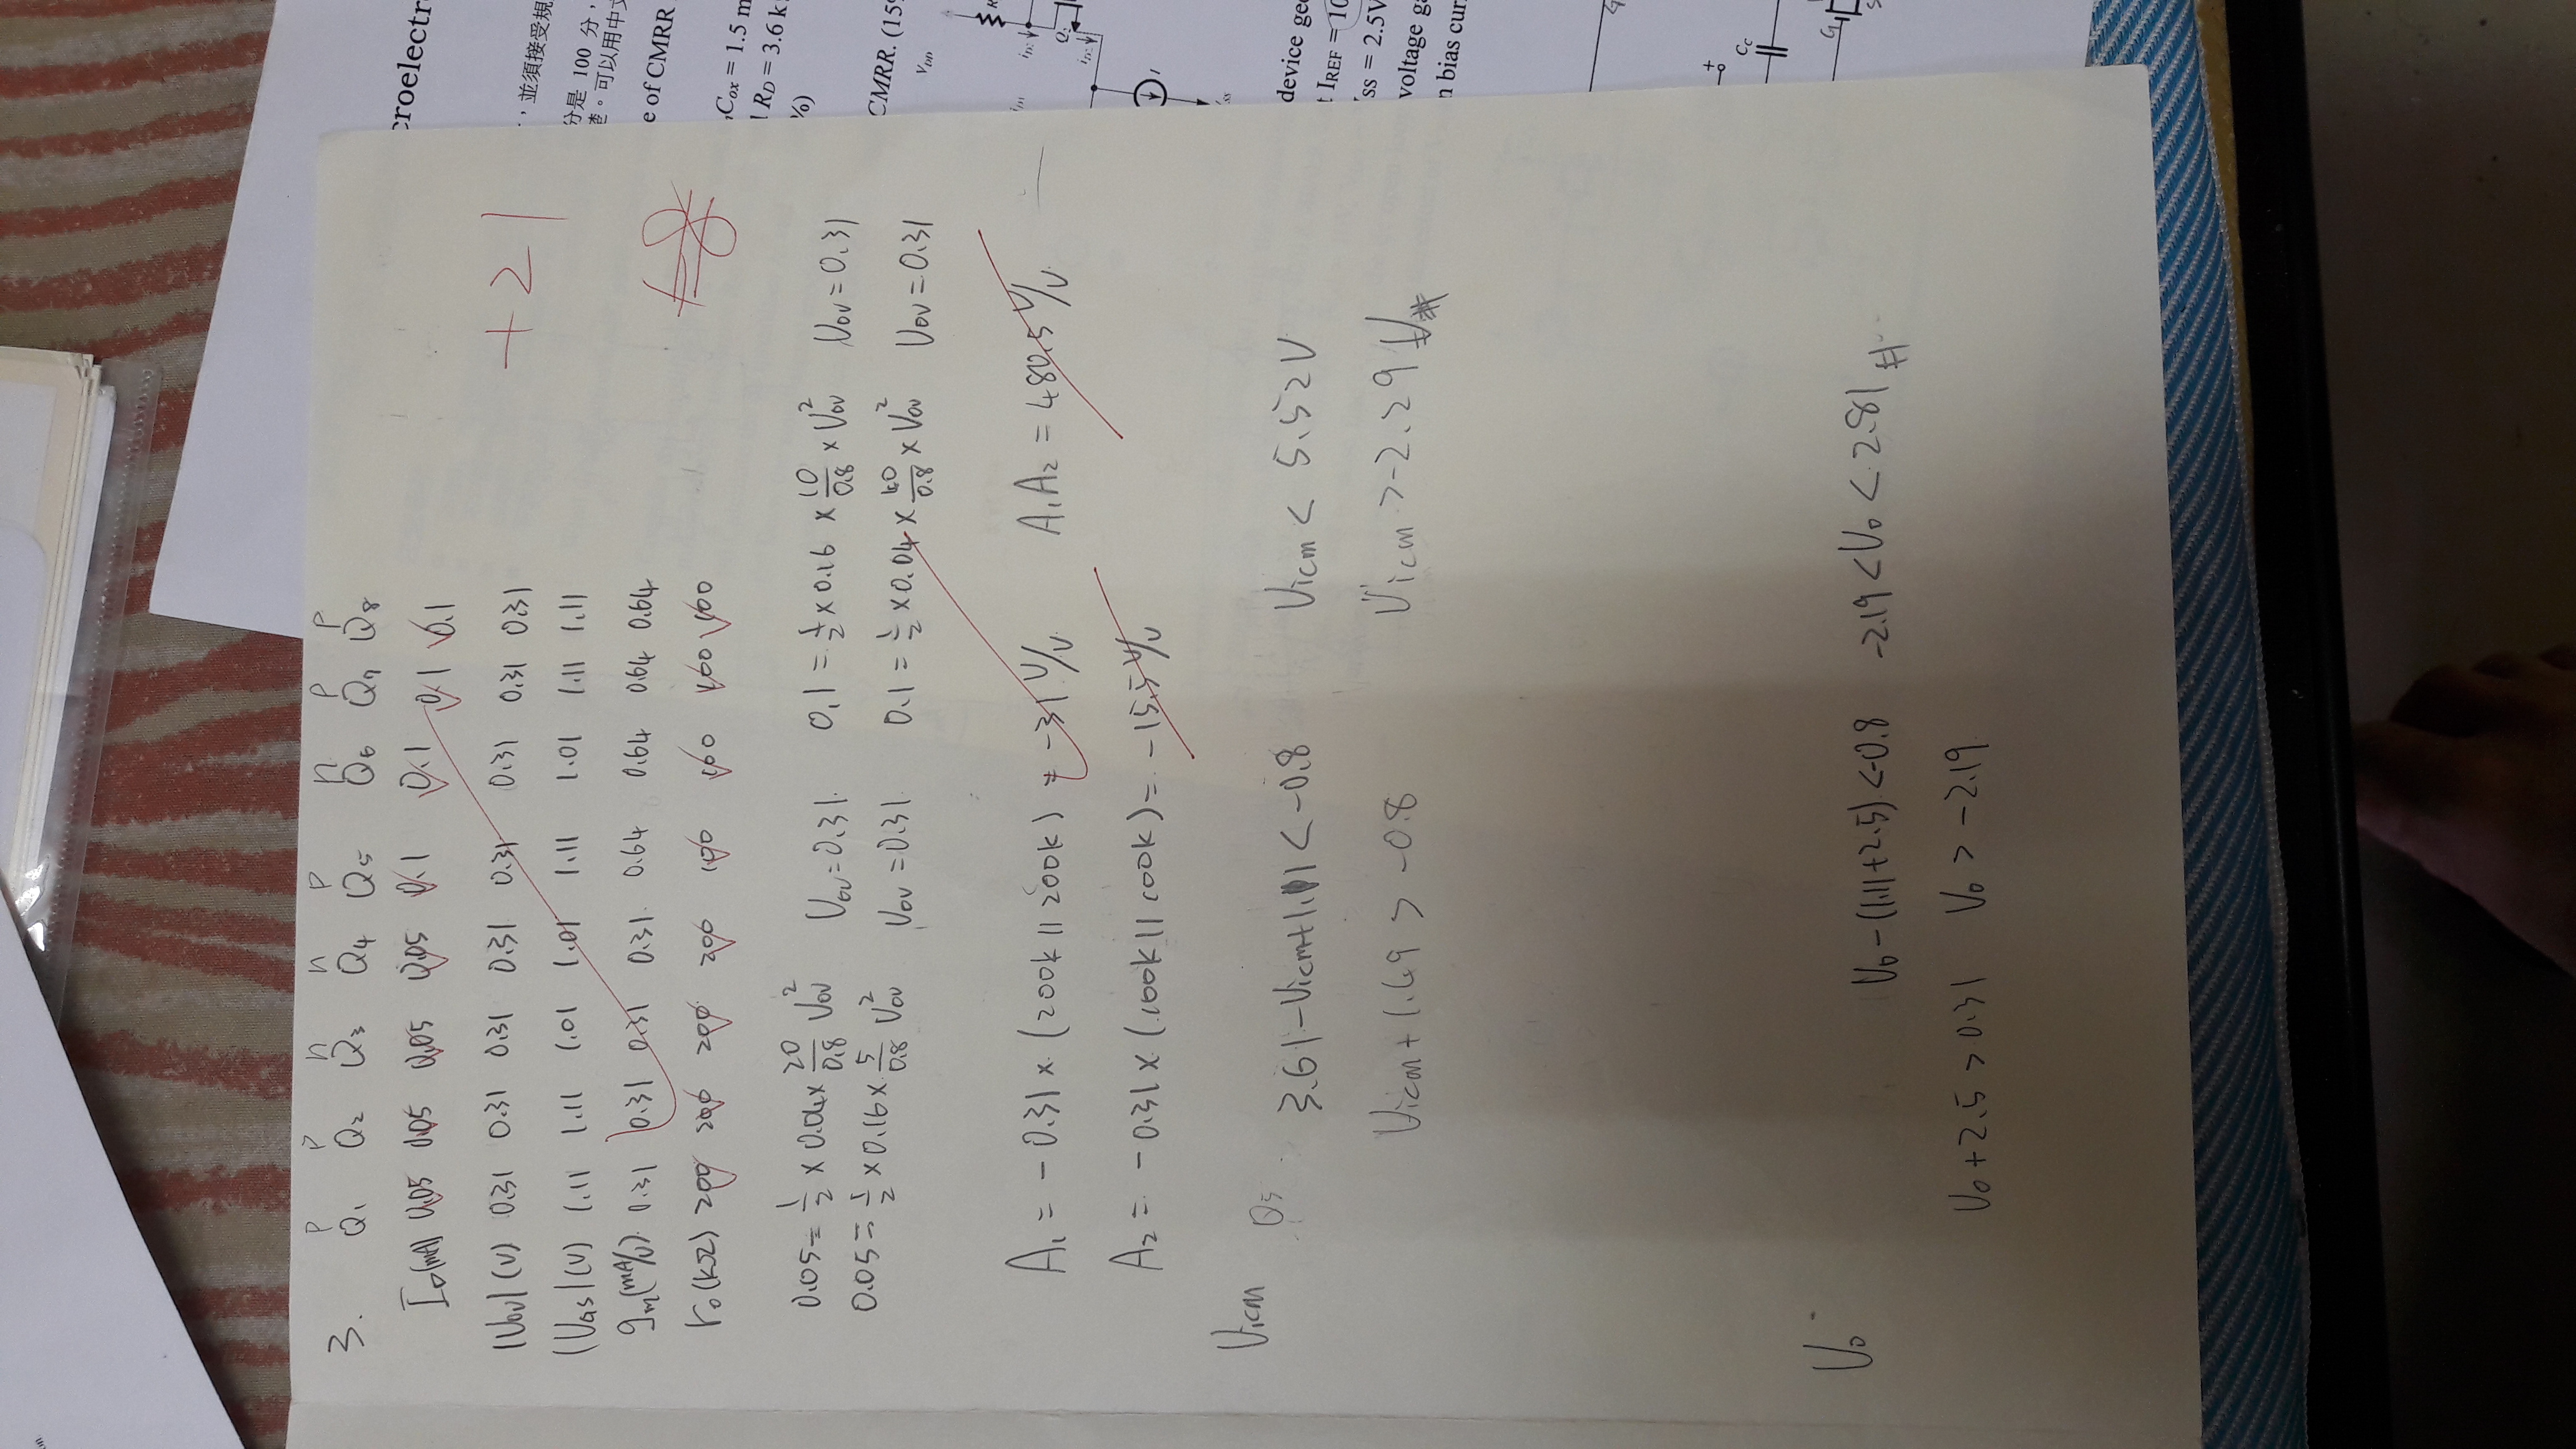 on.
3.
P P n n P n P P
Q₁ Q₂ Q₃ Q₄ Q₅ Q₆ Q₇ Q₈
I_D(mA) 0.05 0.05 0.05 0.05 0.1 0.1 0.1 0.1
|V_OV|(V) 0.31 0.31 0.31 0.31 0.31 0.31 0.31 0.31
|V_GS|(V) 1.11 1.11 1.01 1.01 1.11 1.01 1.11 1.11
g_m(mA/V) 0.31 0.31 0.31 0.31 0.64 0.64 0.64 0.64
r_o(kΩ) 200 200 200 200 100 100 100 100
+21
+8
0.05 = 1/2 × 0.04 × 20/0.8 V_OV² V_OV = 0.31
0.05 = 1/2 × 0.16 × 5/0.8 V_OV² V_OV = 0.31
0.1 = 1/2 × 0.16 × 10/0.8 × V_OV² V_OV = 0.31
0.1 = 1/2 × 0.04 × 40/0.8 × V_OV² V_OV = 0.31
A₁ = -0.31 × (200k || 200k) = -31 V/V A₁A₂ = 480.5 V/V
A₂ = -0.31 × (100k || 100k) = -15.5 V/V
V_icm Q₅
3.61 - V_icm + 1.11 < -0.8 V_icm < 5.52V
V_icm + 1.49 > -0.8 V_icm > -2.29 V #
V_o
V_o - (1.11 + 2.5) < -0.8 -2.19 < V_o < 2.81 #
V_o + 2.5 > 0.31 V_o > -2.19
croelectr
，並須接受規
分是 100 分，
楚。可以用中文
e of CMRR
Cox = 1.5 m
R_D = 3.6 k
%)
CMRR. (15%
V_DD
R
i_D2
Q₂
I
ss
device geo
t I_REF = 10
ss = 2.5V
voltage ga
n bias curr
G
+
C_C
G
S